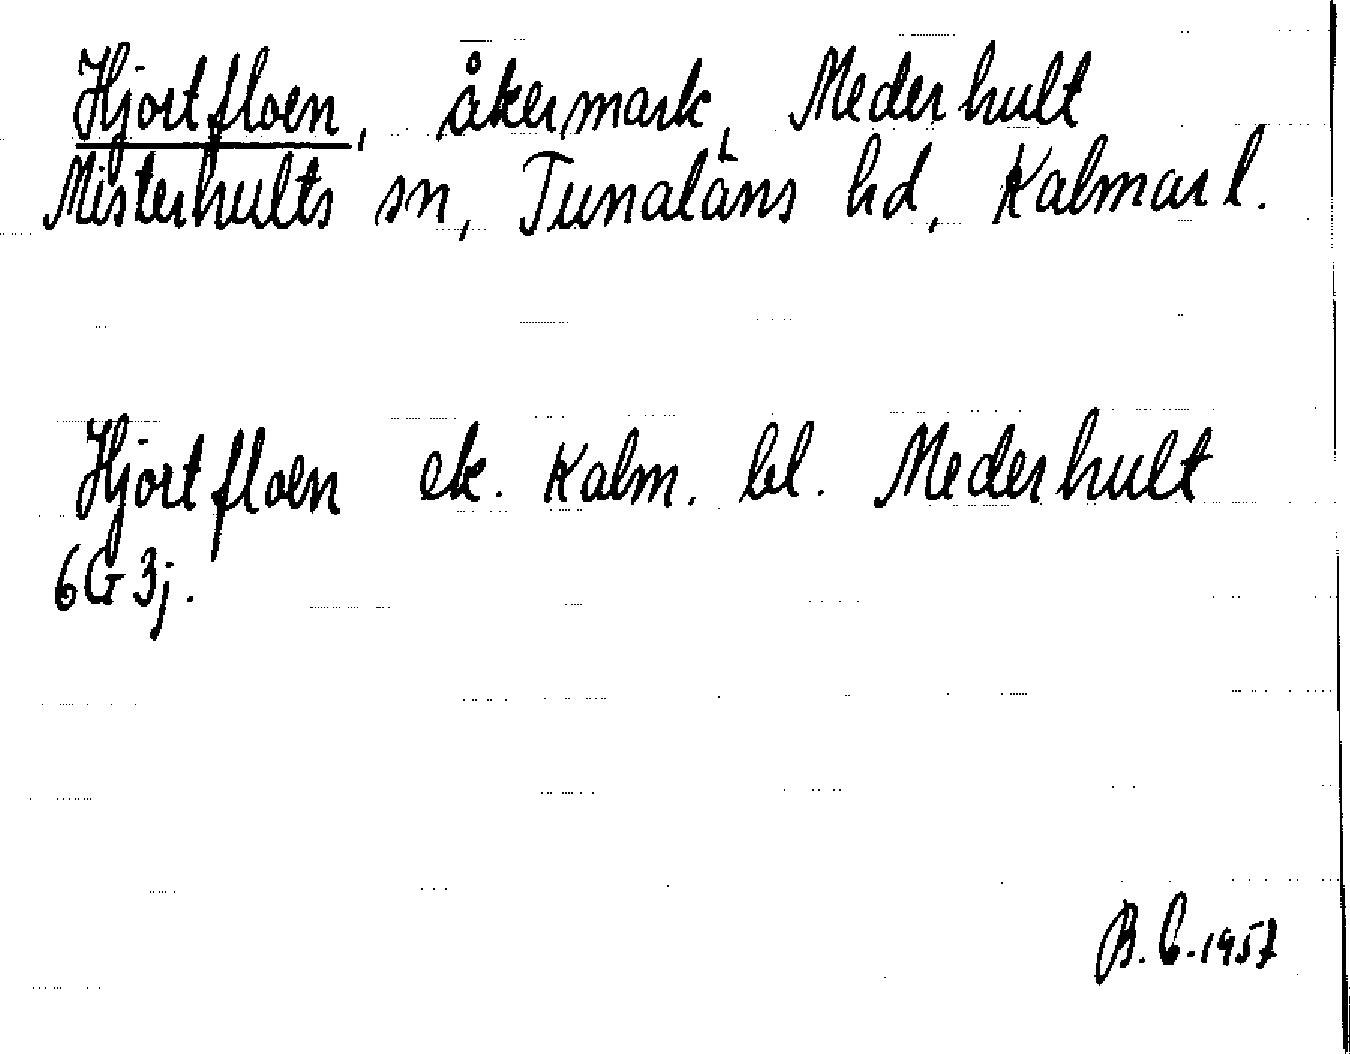 Hjortfloen, åkermark, Mederhult
Misterhults sn, Tunaläns hd, Kalmar l.
Hjortfloen ek. Kalm. bl. Mederhult
6G3j.
B. C. 1957